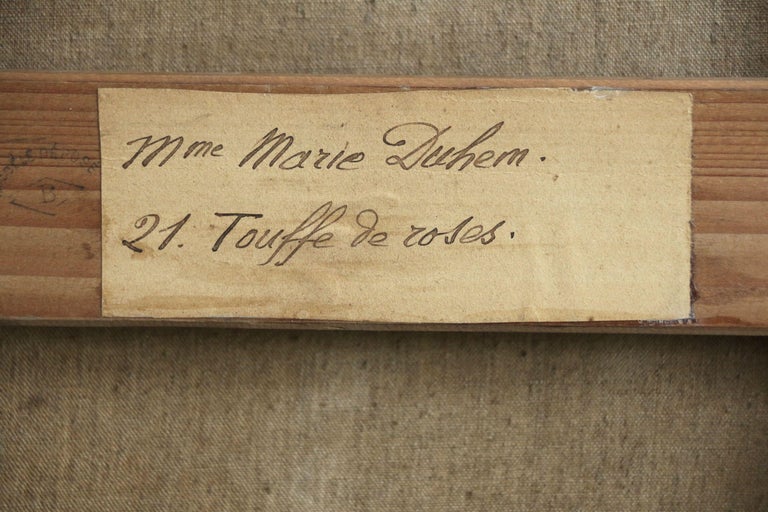 Mme Marie Duhem.
21. Touffe de roses.
B